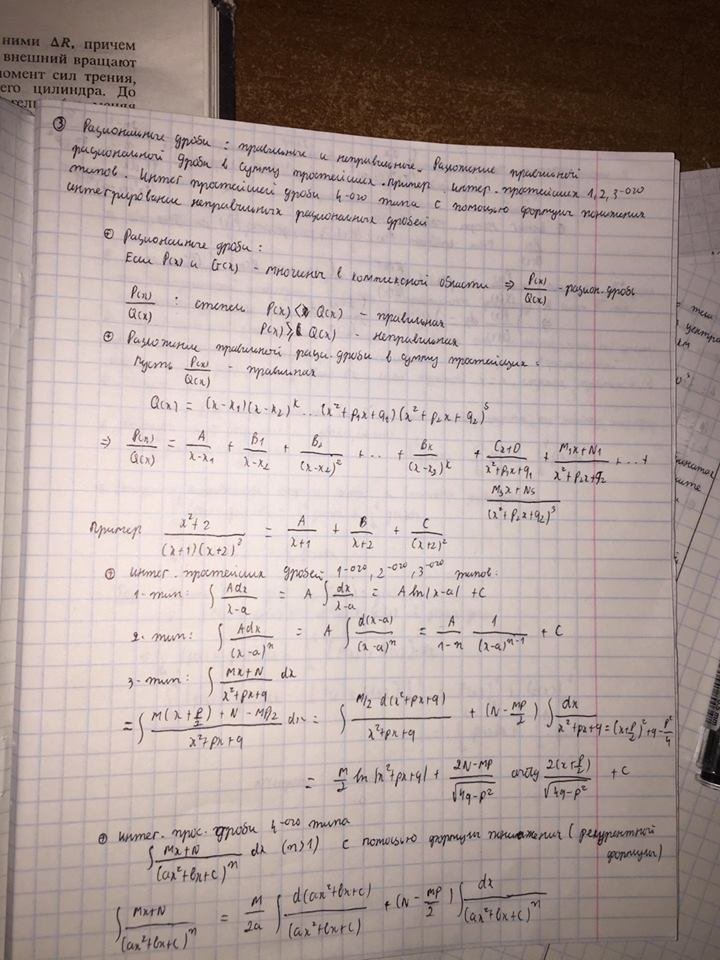 ними ΔR, причем
внешний вращают
момент сил трения,
его цилиндра. До
③ Рациональные дроби: правильные и неправильные. Разложение правильной
рациональной дроби в сумму простейших. Пример. интег. простейших 1,2,3-ого
типов. Интег простейшей дроби 4-ого типа с помощью формулы понижения
интегрирование неправильных рациональных дробей
Рациональные дроби:
Если P(x) и Q(x) - многочлены в комплексной области ⇒ P(x)/Q(x) - рацион. дробь
P(x)/Q(x) : степень P(x) < Q(x) - правильная
P(x) ≥ Q(x) - неправильная
Разложение правильной рац. дроби в сумму простейших:
Пусть P(x)/Q(x) - правильная
Q(x) = (x-x₁)(x-x₂)^k ... (x²+p₁x+q₁)(x²+p₂x+q₂)^s
⇒ P(x)/Q(x) = A/(x-x₁) + B₁/(x-x₂) + B₂/(x-x₂)² + ... + Bk/(x-x₃)^k + (Cx+D)/(x²+p₁x+q₁) + (M₁x+N₁)/(x²+p₂x+q₂) + ... +
(Msx+Ns)/(x²+p₂x+q₂)^s
Пример (x²+2)/((x+1)(x+2)²) = A/(x+1) + B/(x+2) + C/(x+2)²
интег. простейших дробей 1-ого, 2-ого, 3-ого типов:
1-тип: ∫ Adx/(x-a) = A ∫ dx/(x-a) = A ln|x-a| + C
2-тип: ∫ Adx/(x-a)^n = A ∫ d(x-a)/(x-a)^n = A/(1-n) 1/(x-a)^(n-1) + C
3-тип: ∫ (Mx+N)/(x²+px+q) dx
= ∫ (M(x+p/2)+N-Mp/2)/(x²+px+q) dx = ∫ M/2 d(x²+px+q)/(x²+px+q) + (N-Mp/2) ∫ dx/(x²+px+q = (x+p/2)²+q-p²/4)
= M/2 ln|x²+px+q| + (2N-Mp)/√(4q-p²) arctg 2(x+p/2)/√(4q-p²) + C
интег. прос. дроби 4-ого типа
∫ (Mx+N)/(ax²+bx+c)^n dx (n>1) с помощью формулы понижения (рекурентной
формулы)
∫ (Mx+N)/(ax²+bx+c)^n = M/2a ∫ d(ax²+bx+c)/(ax²+bx+c) + (N-Mp/2) ∫ dx/(ax²+bx+c)^n